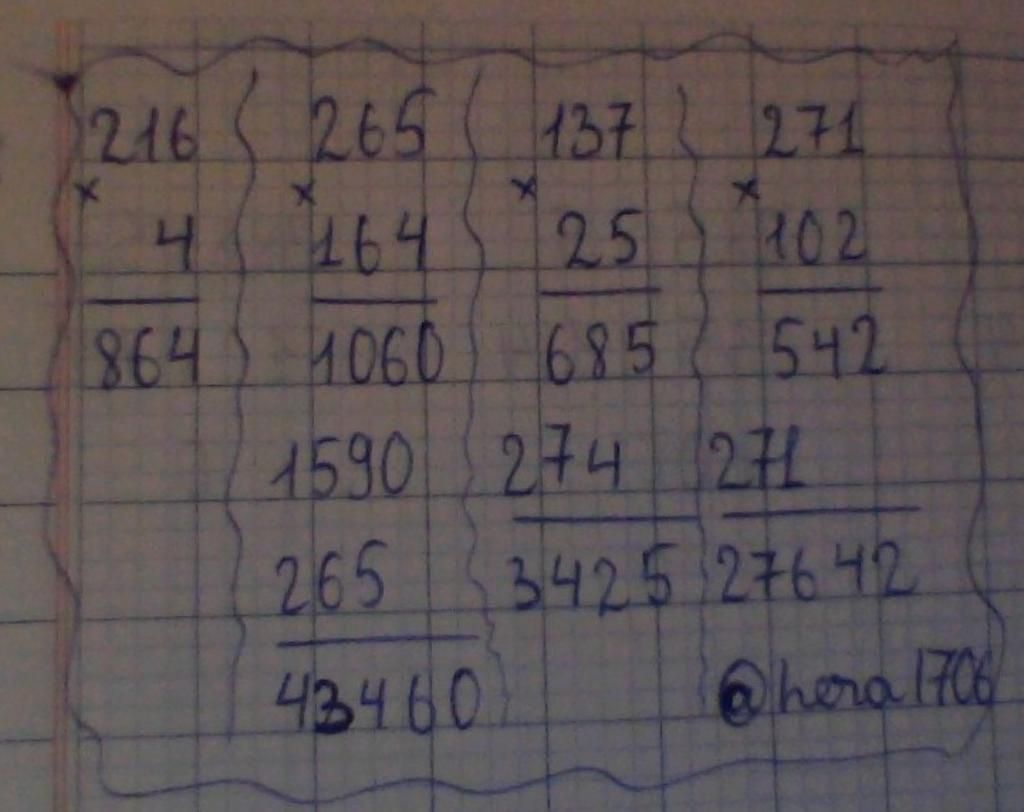 216 265 137 271
× × × ×
4 164 25 102
864 1060 685 542
1590 274 271
265 3425 27642
43460 @hera1706